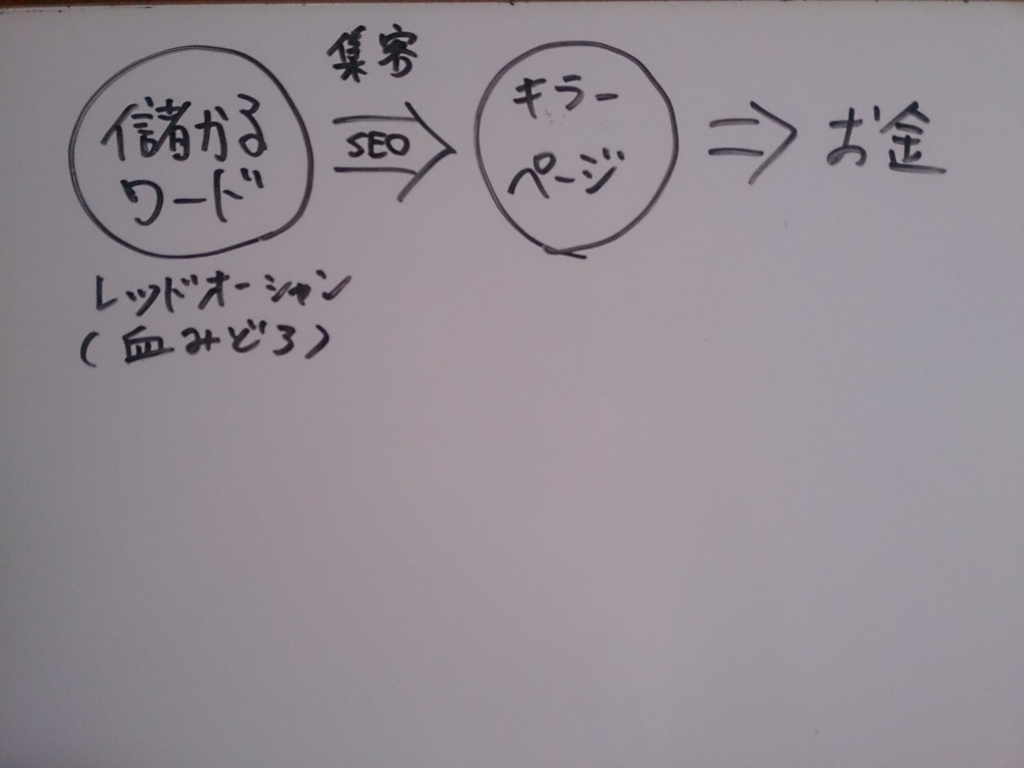 集客
儲かる
ワード
SEO
キラー
ページ
お金
レッドオーシャン
(血みどろ)